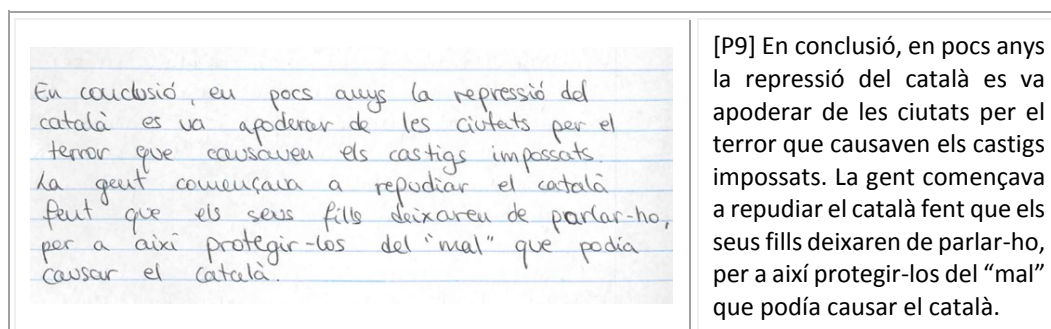 En conclusió, en pocs anys la repressió del
català es va apoderar de les ciutats per el
terror que causaven els castigs impossats.
La gent començava a repudiar el català
fent que els seus fills deixaren de parlar-ho,
per a així protegir-los del "mal" que podía
causar el català.
[P9] En conclusió, en pocs anys
la repressió del català es va
apoderar de les ciutats per el
terror que causaven els castigs
impossats. La gent començava
a repudiar el català fent que els
seus fills deixaren de parlar-ho,
per a així protegir-los del “mal”
que podía causar el català.